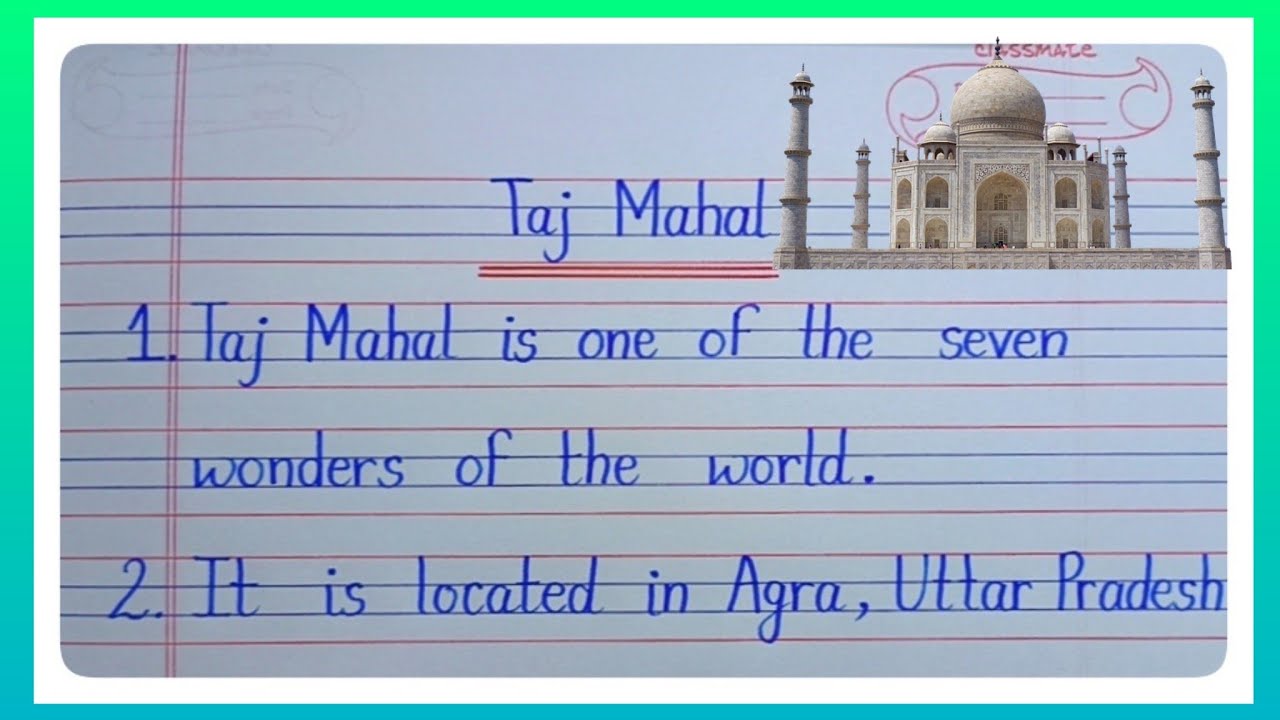 classmate
Taj Mahal
1. Taj Mahal is one of the seven
wonders of the world.
2. It is located in Agra, Uttar Pradesh